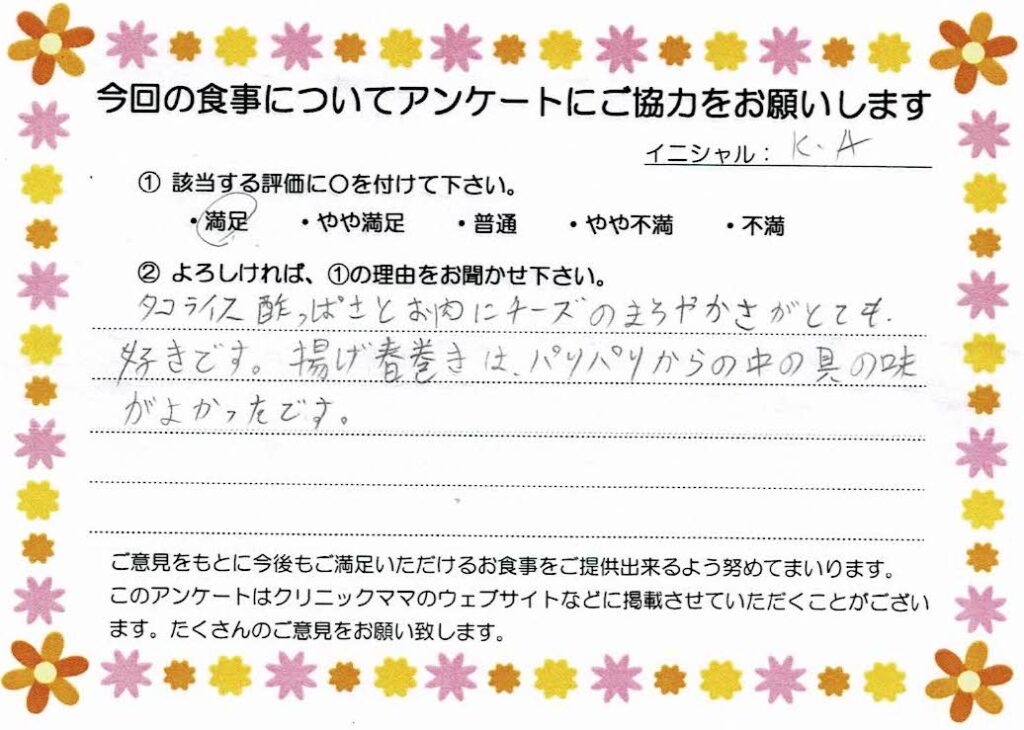 今回の食事についてアンケートにご協力をお願いします
イニシャル： K.A
① 該当する評価に〇を付けて下さい。
・満足 ・やや満足 ・普通 ・やや不満 ・不満
② よろしければ、①の理由をお聞かせ下さい。
タコライス酢っぱさとお肉にチーズのまろやかさがとても、
好きです。揚げ春巻きは、パリパリからの中の具の味
がよかったです。
ご意見をもとに今後もご満足いただけるお食事をご提供出来るよう努めてまいります。
このアンケートはクリニックママのウェブサイトなどに掲載させていただくことがござい
ます。たくさんのご意見をお願い致します。